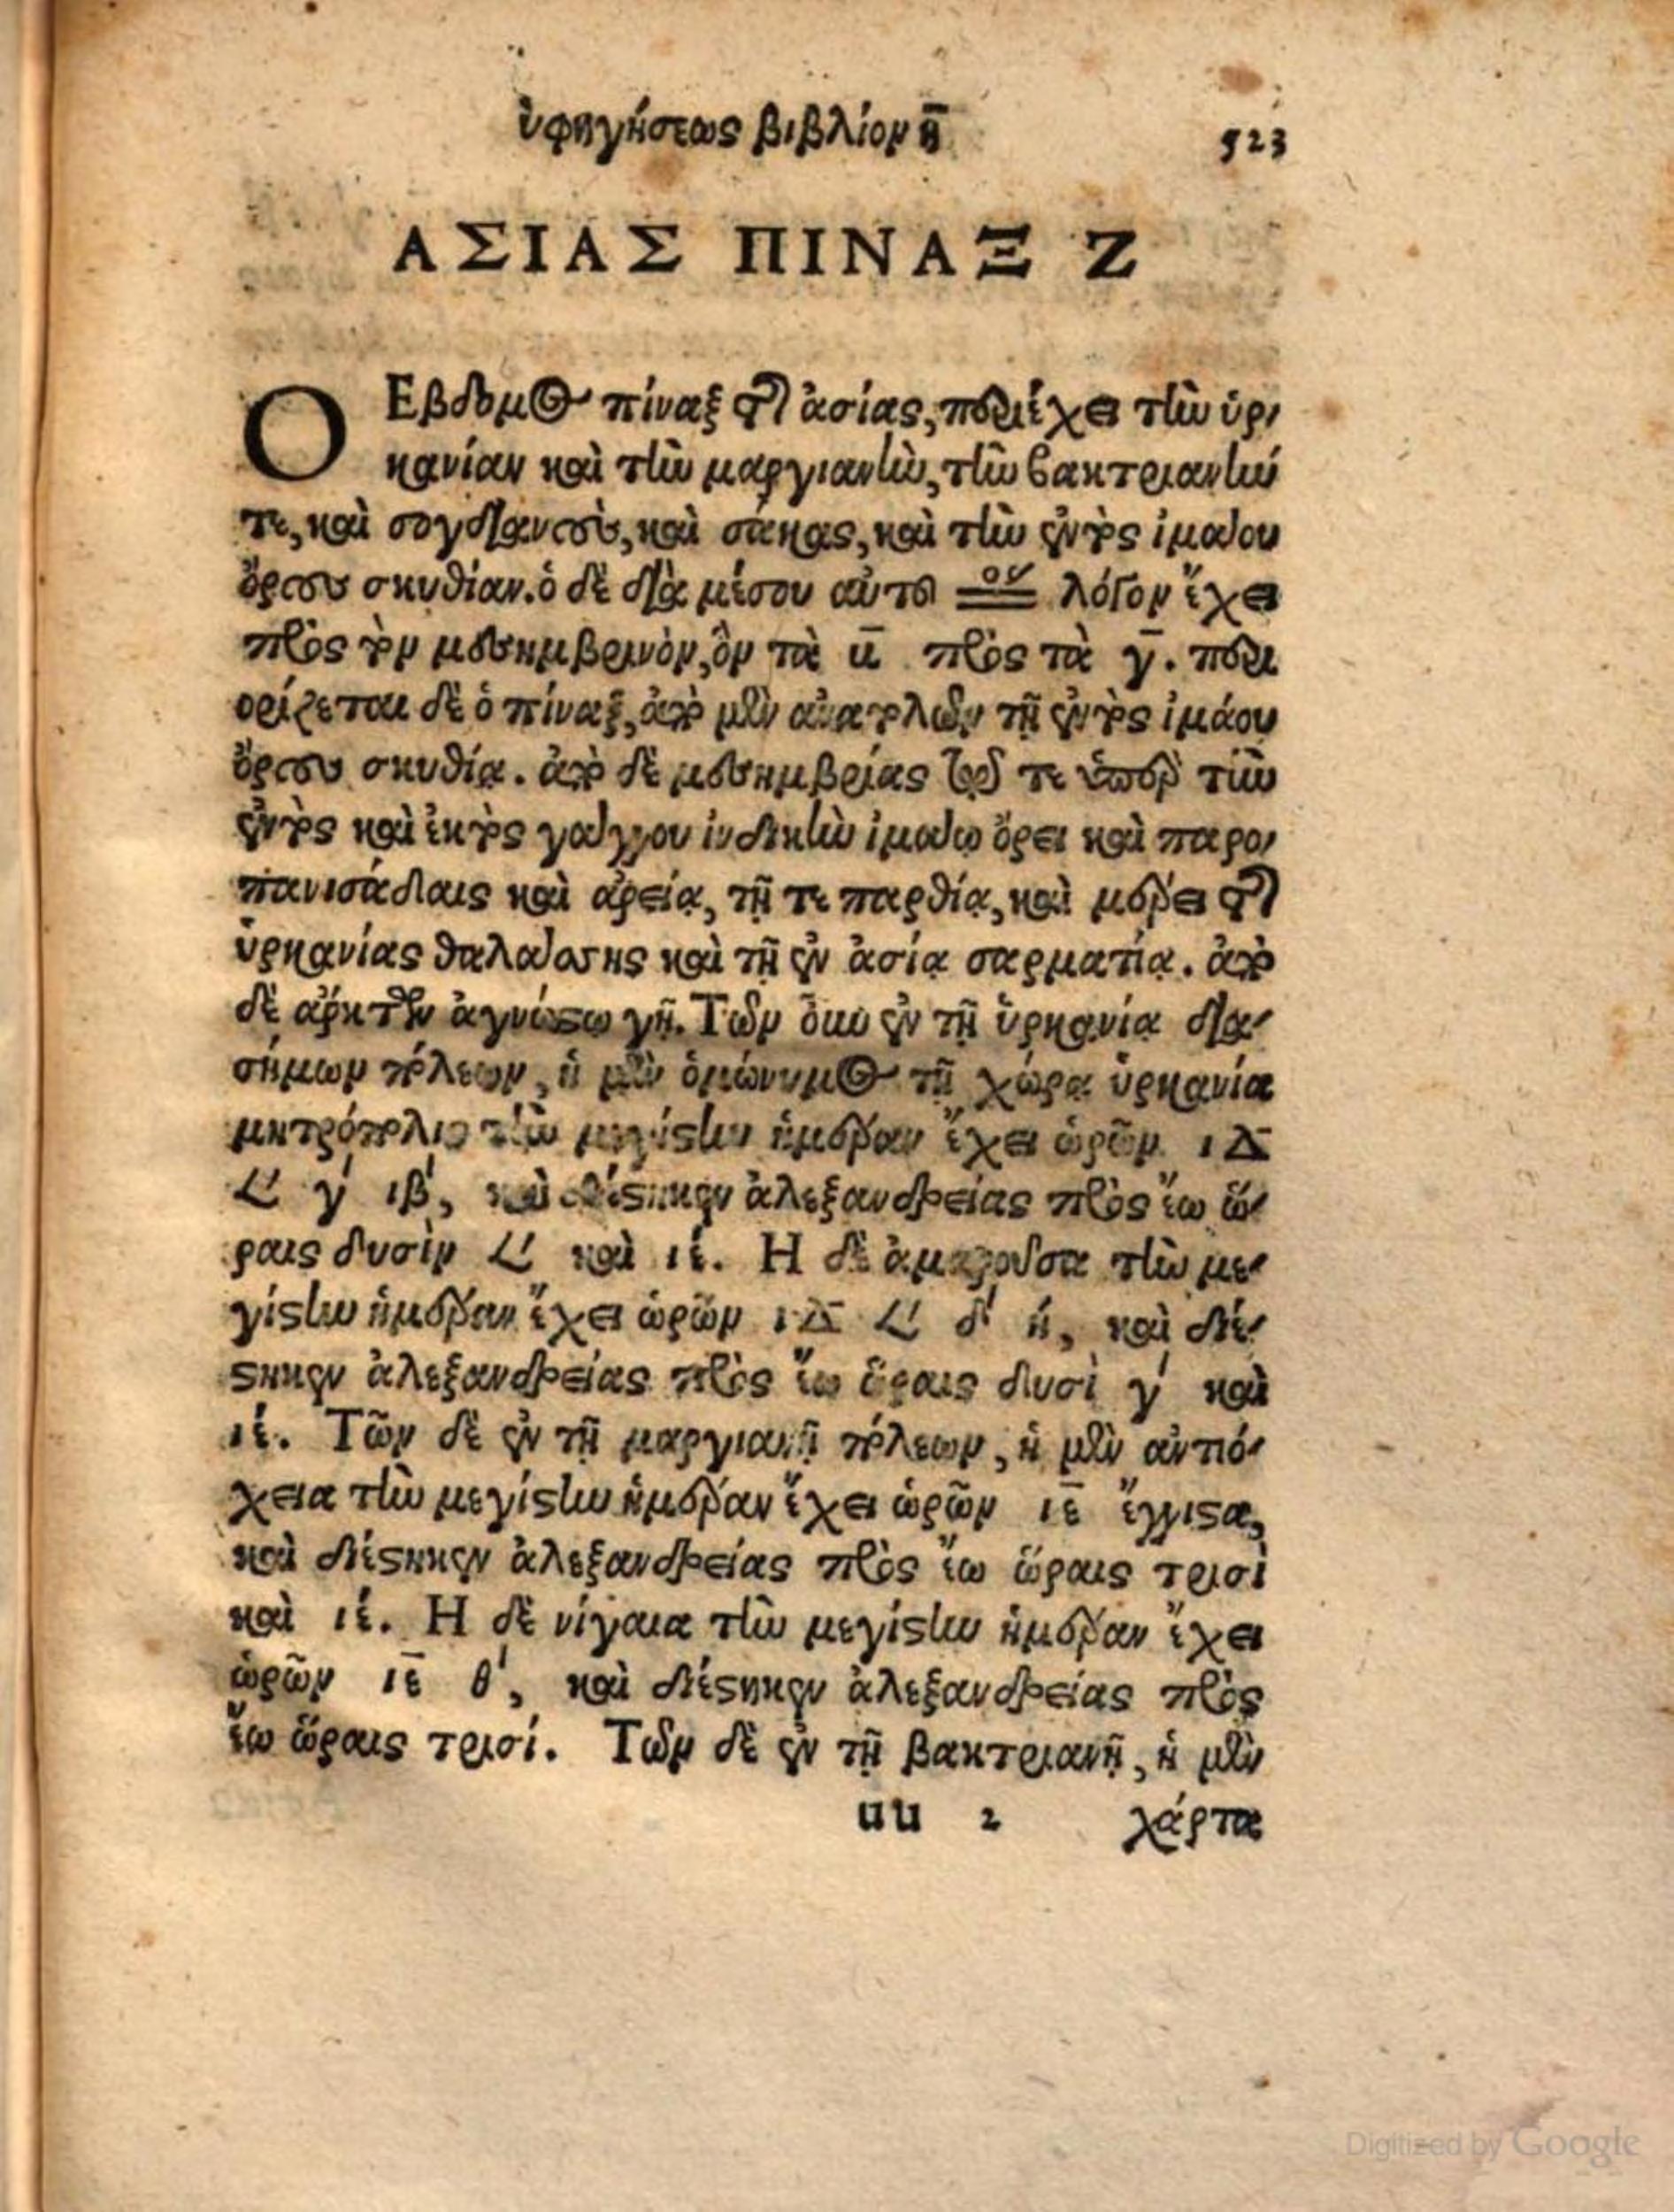 ὑφηγήσεως βιβλίον η̄ 523
ΑΣΙΑΣ ΠΙΝΑΞ Ζ
Ο Εβδομος πίναξ της ἀσίας, περιέχει τὴν ὑρ
κανίαν καὶ τὴν μαργιανὴν, τὴν βακτριανήν
τε, καὶ σογδιανοὺς, καὶ σάκας, καὶ τὴν ἐντὸς ἰμάου
ὄρους σκυθίαν. ὁ δὲ διὰ μέσου αὐτοῦ λόγον ἔχει
πρὸς τὸν μεσημβρινὸν, ὃν τὰ πρὸς τὰ γ̄. περι
ορίζεται δὲ ὁ πίναξ, ἀπὸ μὲν ἀνατολῶν τῇ ἐντὸς ἰμάου
ὄρους σκυθίᾳ. ἀπὸ δὲ μεσημβρίας τε ὑπὲρ τὴν
ἐντὸς καὶ ἐκτὸς γάγγου ἰνδικὴν ἰμάῳ ὄρει καὶ παρο
πανισάδαις καὶ ἀρείᾳ, τῇ τε παρθίᾳ, καὶ μέρει της
ὑρκανίας θαλάσσης καὶ τῇ ἐν ἀσίᾳ σαρματίᾳ. ἀπὸ
δὲ ἄρκτων ἀγνώστῳ γῇ. Τῶν οὖν ἐν τῇ ὑρκανίᾳ δια
σήμων πόλεων, ἡ μὲν ὁμώνυμος τῇ χώρᾳ ὑρκανία
μητρόπολις τὴν μεγίστην ἡμέραν ἔχει ὡρῶν ιΔ
𐅵 γ́ ιβ́, καὶ διέστηκεν ἀλεξανδρείας πρὸς ἕω ὥ
ραις δυσὶν 𐅵 καὶ ιέ. Η δὲ ἀμαροῦσα τὴν με
γίστην ἡμέραν ἔχει ὡρῶν ιΔ 𐅵 δ́ ή, καὶ διέ
στηκεν ἀλεξανδρείας πρὸς ἕω ὥραις δυσὶ γ́ καὶ
ιέ. Τῶν δὲ ἐν τῇ μαργιανῇ πόλεων, ἡ μὲν ἀντιό
χεια τὴν μεγίστην ἡμέραν ἔχει ὡρῶν ιε̄ ἔγγιστα,
καὶ διέστηκεν ἀλεξανδρείας πρὸς ἕω ὥραις τρισὶ
καὶ ιέ. Η δὲ νίγαια τὴν μεγίστην ἡμέραν ἔχει
ὡρῶν ιε̄ θ́, καὶ διέστηκεν ἀλεξανδρείας πρὸς
ἕω ὥραις τρισί. Τῶν δὲ ἐν τῇ βακτριανῇ, ἡ μὲν
uu 2 χάρτα
Digitized by Google